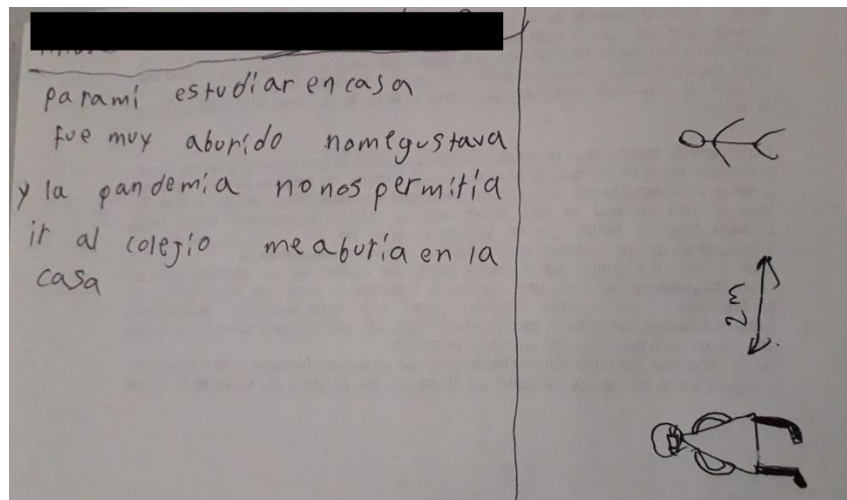 parami estudiar en casa
fue muy aburido nomegustava
y la pandemia nonos permitia
ir al colegio me aburia en la
casa
2 m